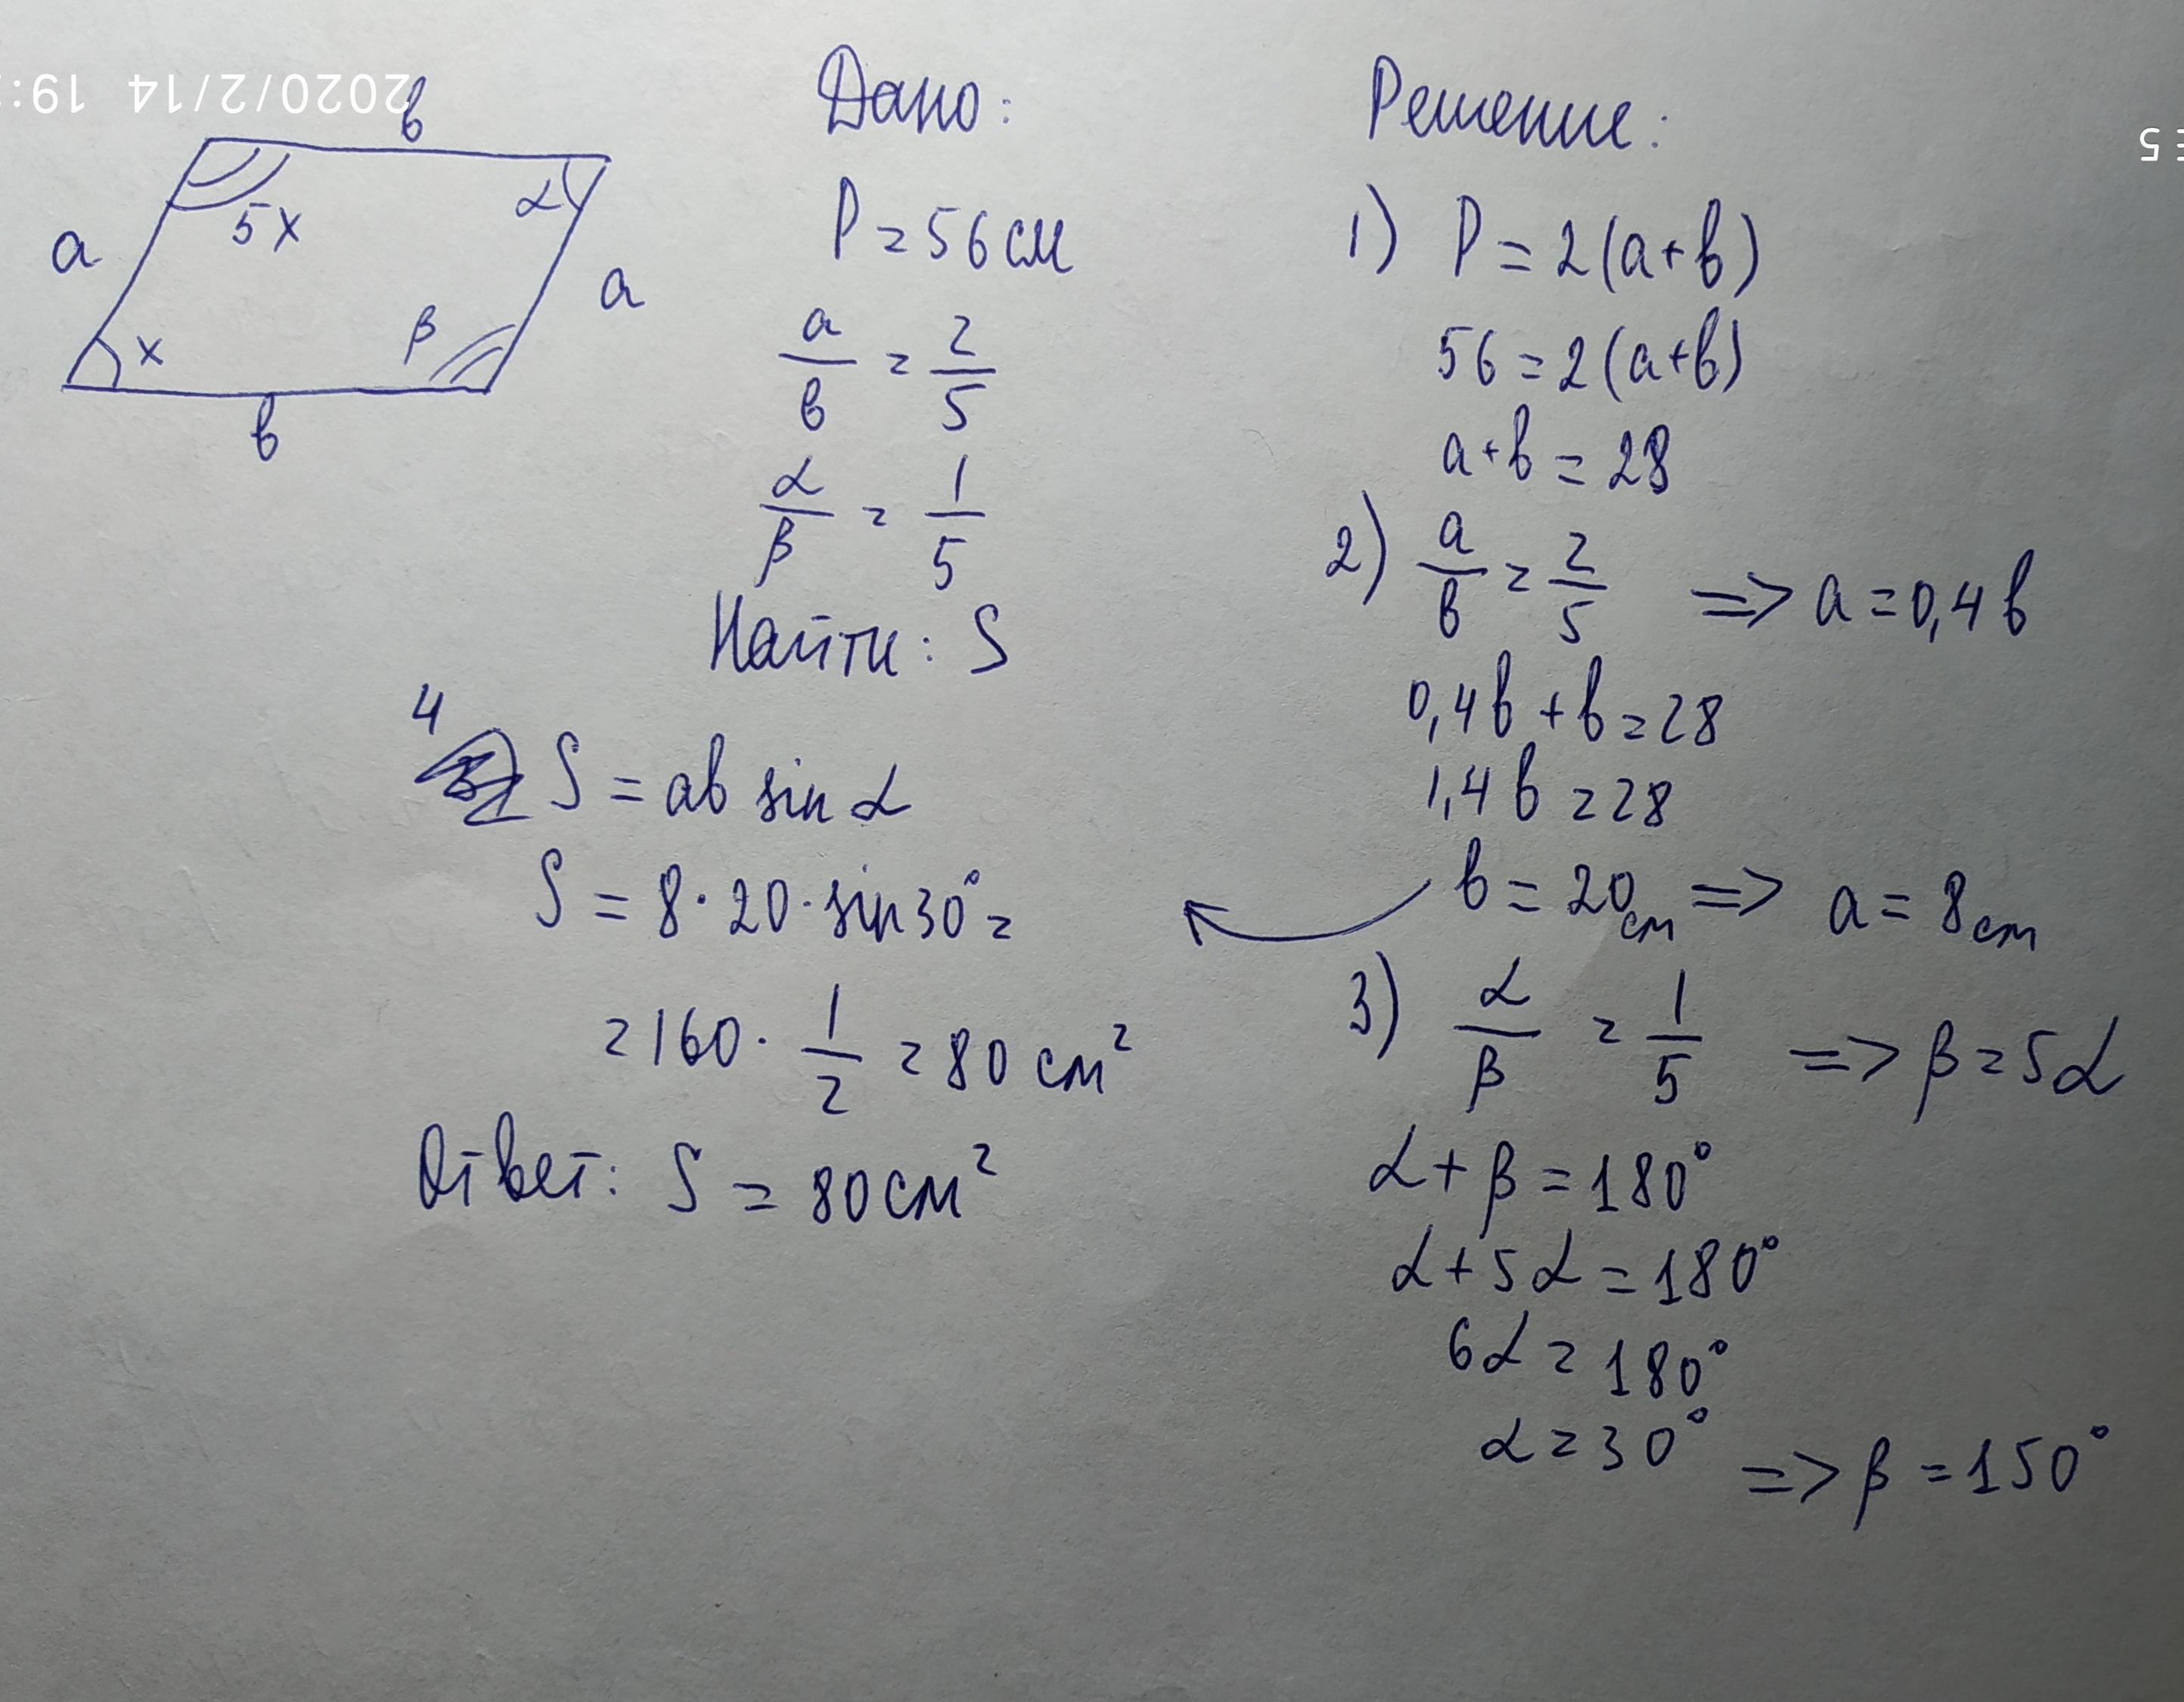 2020/2/14 19:
5
в
5x
α
a
a
x
β
в
Дано:
P = 56 см
a/в = 2/5
α/β = 1/5
Найти: S
Решение:
1) P = 2(a+в)
56 = 2(a+в)
a+в = 28
2) a/в = 2/5 => a = 0,4в
0,4в + в = 28
1,4в = 28
в = 20см => a = 8см
3) α/β = 1/5 => β = 5α
α + β = 180°
α + 5α = 180°
6α = 180°
α = 30° => β = 150°
4
S = aв sin α
S = 8 · 20 · sin 30° =
= 160 · 1/2 = 80 см²
Ответ: S = 80 см²